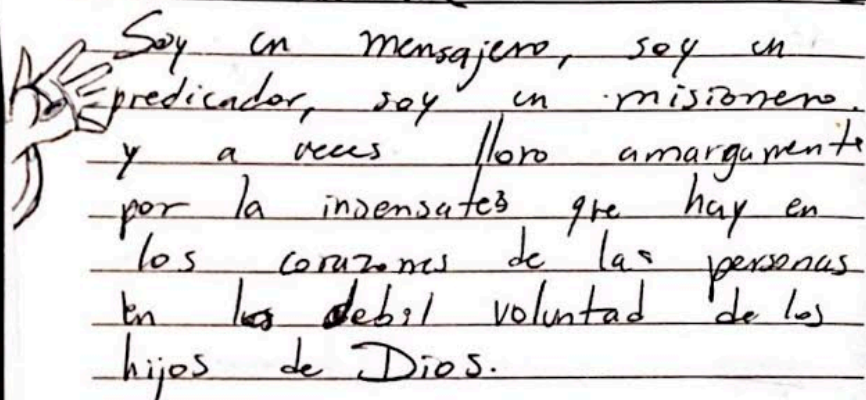 Soy un mensajero, soy un
predicador, soy un misionero.
y a veces lloro amargamente
por la insensates que hay en
los corazones de las personas
en la debil voluntad de los
hijos de Dios.